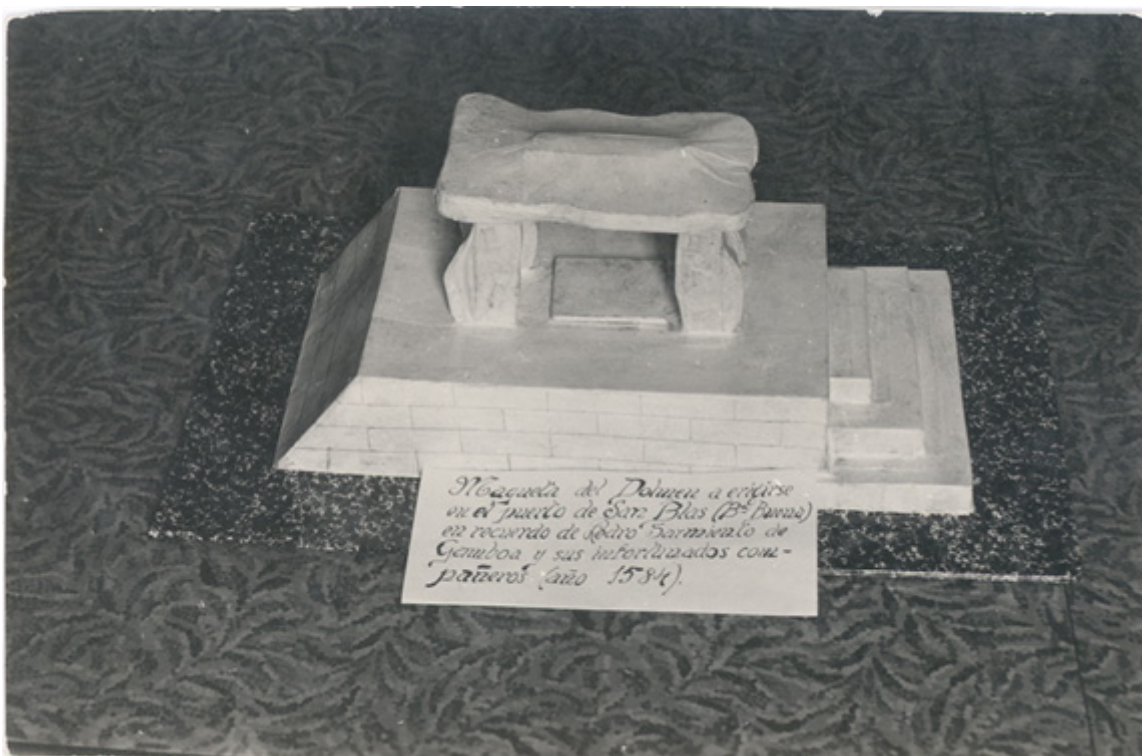 Maqueta del Dolmen a erigirse
en el puerto de San Blas (Bª Buena)
en recuerdo de Pedro Sarmiento de
Gamboa y sus infortunados com-
pañeros (año 1584).